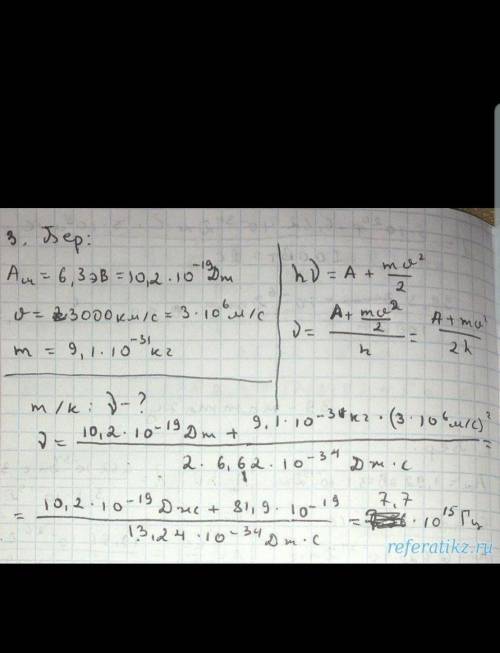 3. Бер:
Aш = 6,3 эВ = 10,2 · 10⁻¹⁹ Дж
υ = 3000 км/с = 3 · 10⁶ м/с
m = 9,1 · 10⁻³¹ кг
hν = A + mυ²/2
ν = (A + mυ²/2)/h = (A + mυ²)/2h
т/к: ν - ?
ν = (10,2 · 10⁻¹⁹ Дж + 9,1 · 10⁻³¹ кг · (3 · 10⁶ м/с)²)/(2 · 6,62 · 10⁻³⁴ Дж · с) =
= (10,2 · 10⁻¹⁹ Дж + 81,9 · 10⁻¹⁹)/(13,24 · 10⁻³⁴ Дж · с) = 7,7 · 10¹⁵ Гц
referatikz.ru